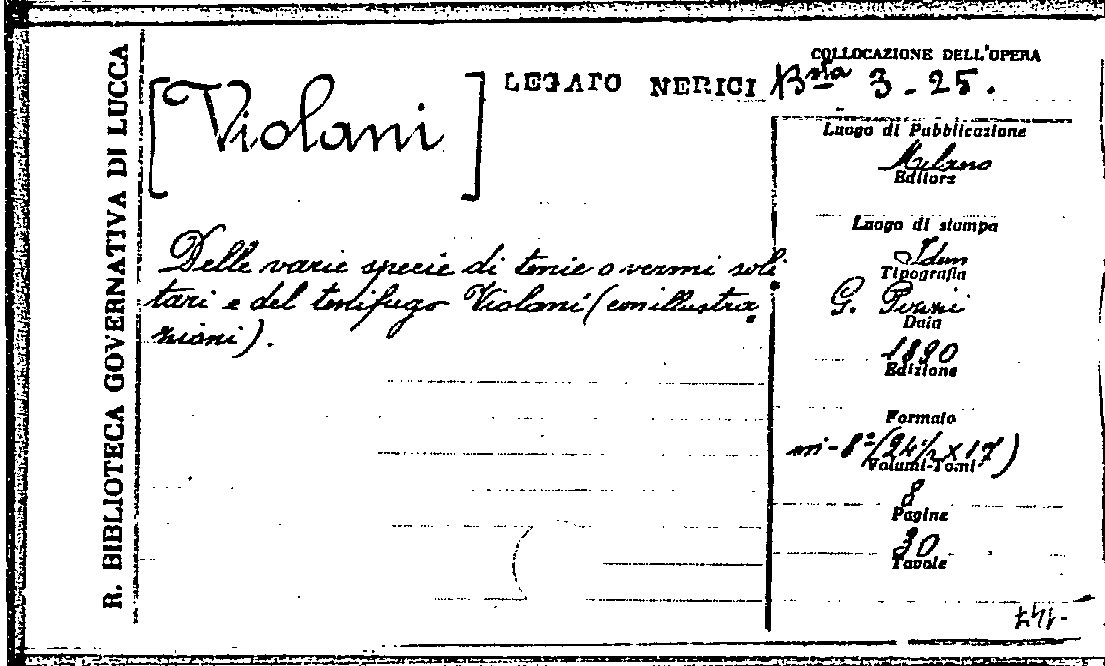 R. BIBLIOTECA GOVERNATIVA DI LUCCA
[Violani]
LEGATO NERICI
COLLOCAZIONE DELL'OPERA
Bsta 3-25.
Delle varie specie di tenie o vermi soli
tari e del tenifugo Violani (con illustra
zioni).
Luogo di Pubblicazione
Milano
Editore
Luogo di stampa
Idem
Tipografia
G.
Data
1890
Edizione
Formato
in-8º (24½ x 17)
Volumi-Tomi
8
Pagine
30
Tavole